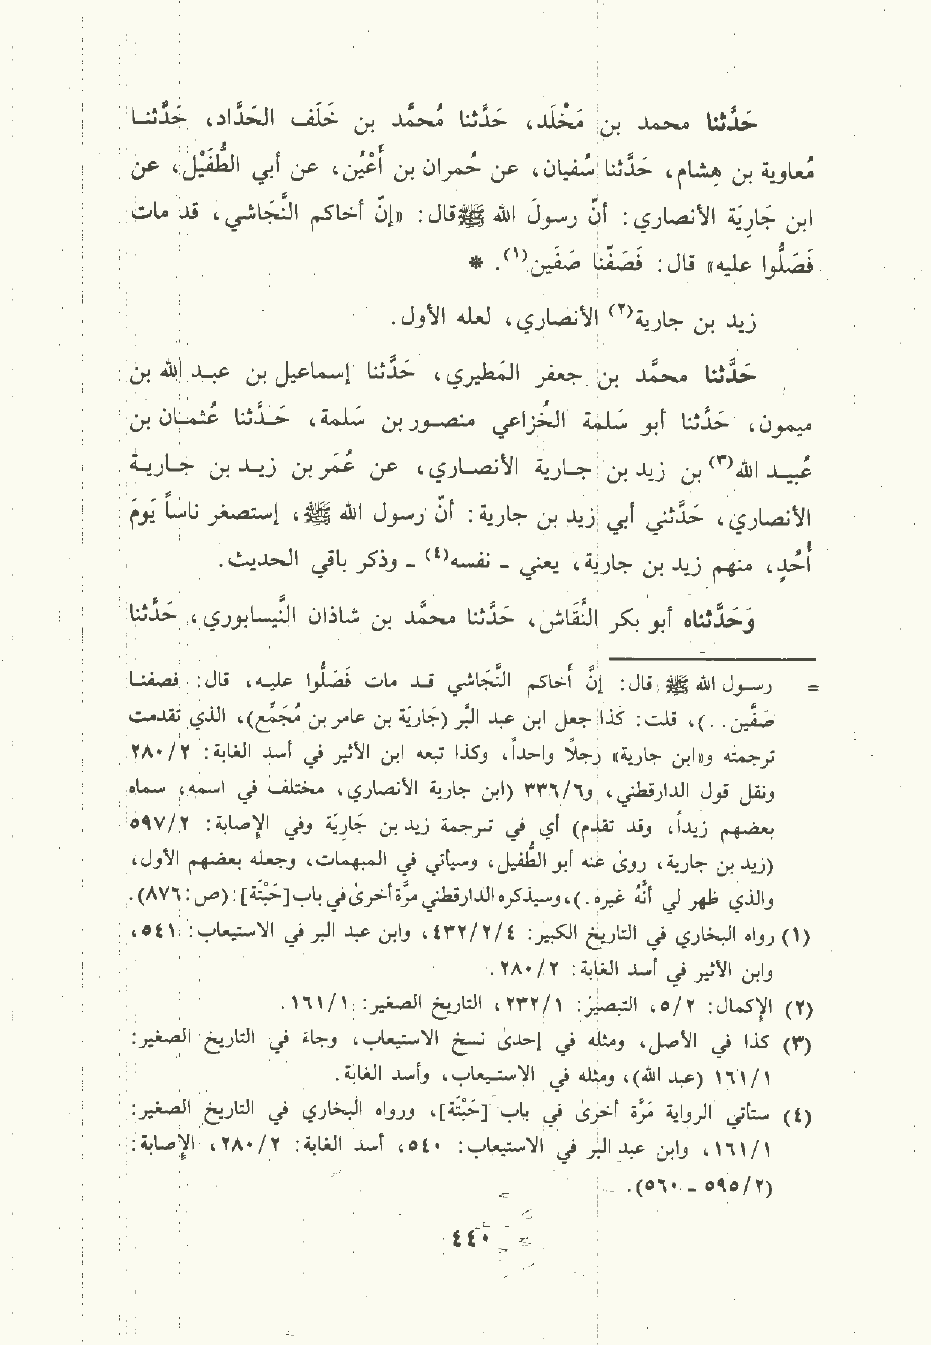 حَدَّثنا محمد بن مَخْلَد، حَدَّثنا مُحمَّد بن خَلَف الحَدَّاد، حَدَّثنا
مُعاوية بن هِشام، حَدَّثنا سُفيان، عن حُمران بن أَعْيُن، عن أبي الطُّفَيْل، عن
ابن جَارِيَة الأنصاري: أنّ رسولَ الله ﷺ قال: «إنّ أخاكم النَّجَاشي، قد مات
فَصَلُّوا عليه» قال: فَصَفَّنا صَفَين(١). *
زيد بن جارية(٢) الأنصاري، لعله الأول.
حَدَّثنا محمَّد بن جعفر المَطيري، حَدَّثنا إسماعيل بن عبد الله بن
ميمون، حَدَّثنا أبو سَلمة الخُزاعي منصور بن سَلمة، حَدَّثنا عُثمان بن
عُبيد الله(٣) بن زيد بن جارية الأنصاري، عن عُمَر بن زيد بن جارية
الأنصاري، حَدَّثني أبي زيد بن جارية: أنّ رسول الله ﷺ، إستصغر ناساً يَومَ
أُحُدٍ، منهم زيد بن جارية، يعني - نفسه(٤) - وذكر باقي الحديث.
وَحَدَّثناه أبو بكر النَّقَاش، حَدَّثنا محمَّد بن شاذان النَّيسابوري، حَدَّثنا
= رسول الله ﷺ قال: إنَّ أخاكم النَّجَاشي قد مات فَصَلُّوا عليه، قال: فصفنا
صَفَّين. .)، قلت: كذا جعل ابن عبد البَّر (جَارِيَة بن عامر بن مُجَمِّع)، الذي تقدمت
ترجمته و«ابن جارية» رجلاً واحداً، وكذا تبعه ابن الأثير في أسد الغابة: ٢/ ٢٨٠
ونقل قول الدارقطني، و٦/ ٣٣٦ (ابن جارية الأنصاري، مختلف في اسمه، سماه
بعضهم زيداً، وقد تقدم) أي في ترجمة زيد بن جَارِيَة وفي الإصابة: ٢/ ٥٩٧
(زيد بن جارية، روى عنه أبو الطُّفيل، وسيأتي في المبهمات، وجعله بعضهم الأول،
والذي ظهر لي أنَّهُ غيره.)، وسيذكره الدارقطني مرَّة أخرىٰ في باب [خَبْتَة]: (ص: ٨٧٦).
(١) رواه البخاري في التاريخ الكبير: ٤/ ٢/ ٤٣٢، وابن عبد البر في الاستيعاب: ٥٤١،
وابن الأثير في أسد الغابة: ٢/ ٢٨٠.
(٢) الإكمال: ٢/ ٥، التبصير: ١/ ٢٣٢، التاريخ الصغير: ١/ ١٦١.
(٣) كذا في الأصل، ومثله في إحدىٰ نسخ الاستيعاب، وجاء في التاريخ الصغير:
١/ ١٦١ (عبد الله)، ومثله في الإستيعاب، وأسد الغابة.
(٤) ستأتي الرواية مَرَّة أخرىٰ في باب [خَبْتَة]، ورواه البخاري في التاريخ الصغير:
١/ ١٦١، وابن عبد البر في الاستيعاب: ٥٤٠، أسد الغابة: ٢/ ٢٨٠، الإصابة:
(٢/ ٥٩٥ - ٥٦٠).
٤٤٠